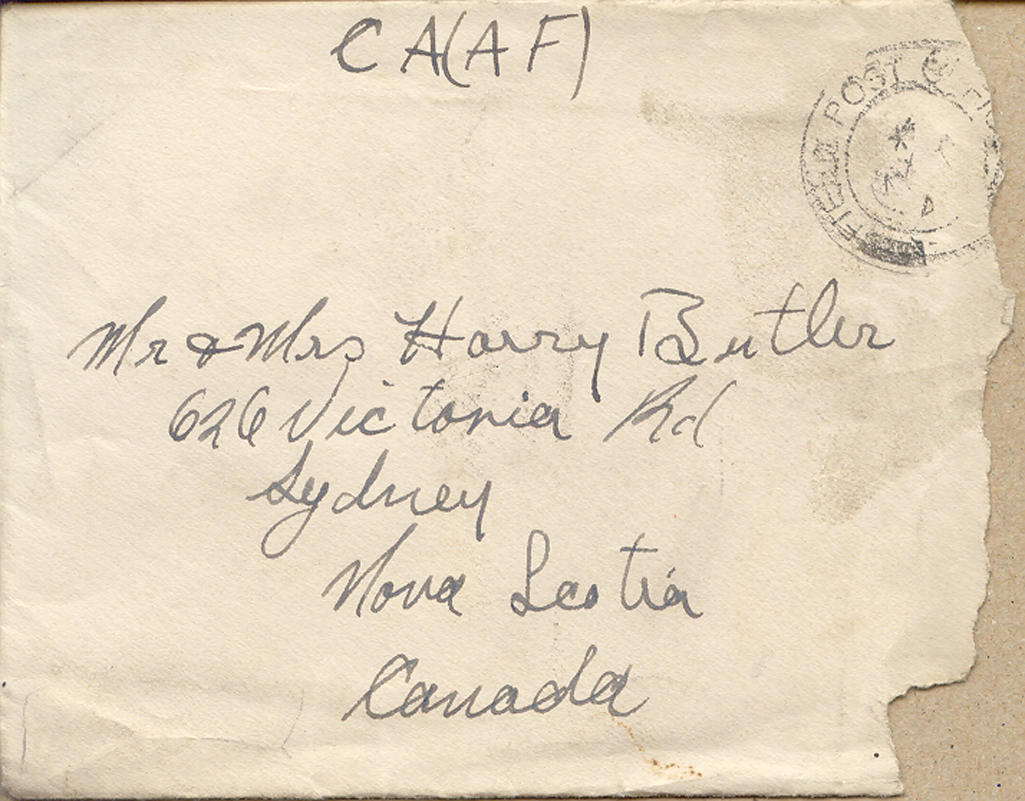 CA(AF)
FIELD POST
Mr & Mrs Harry Butler
626 Victoria Rd
Sydney
Nova Scotia
Canada